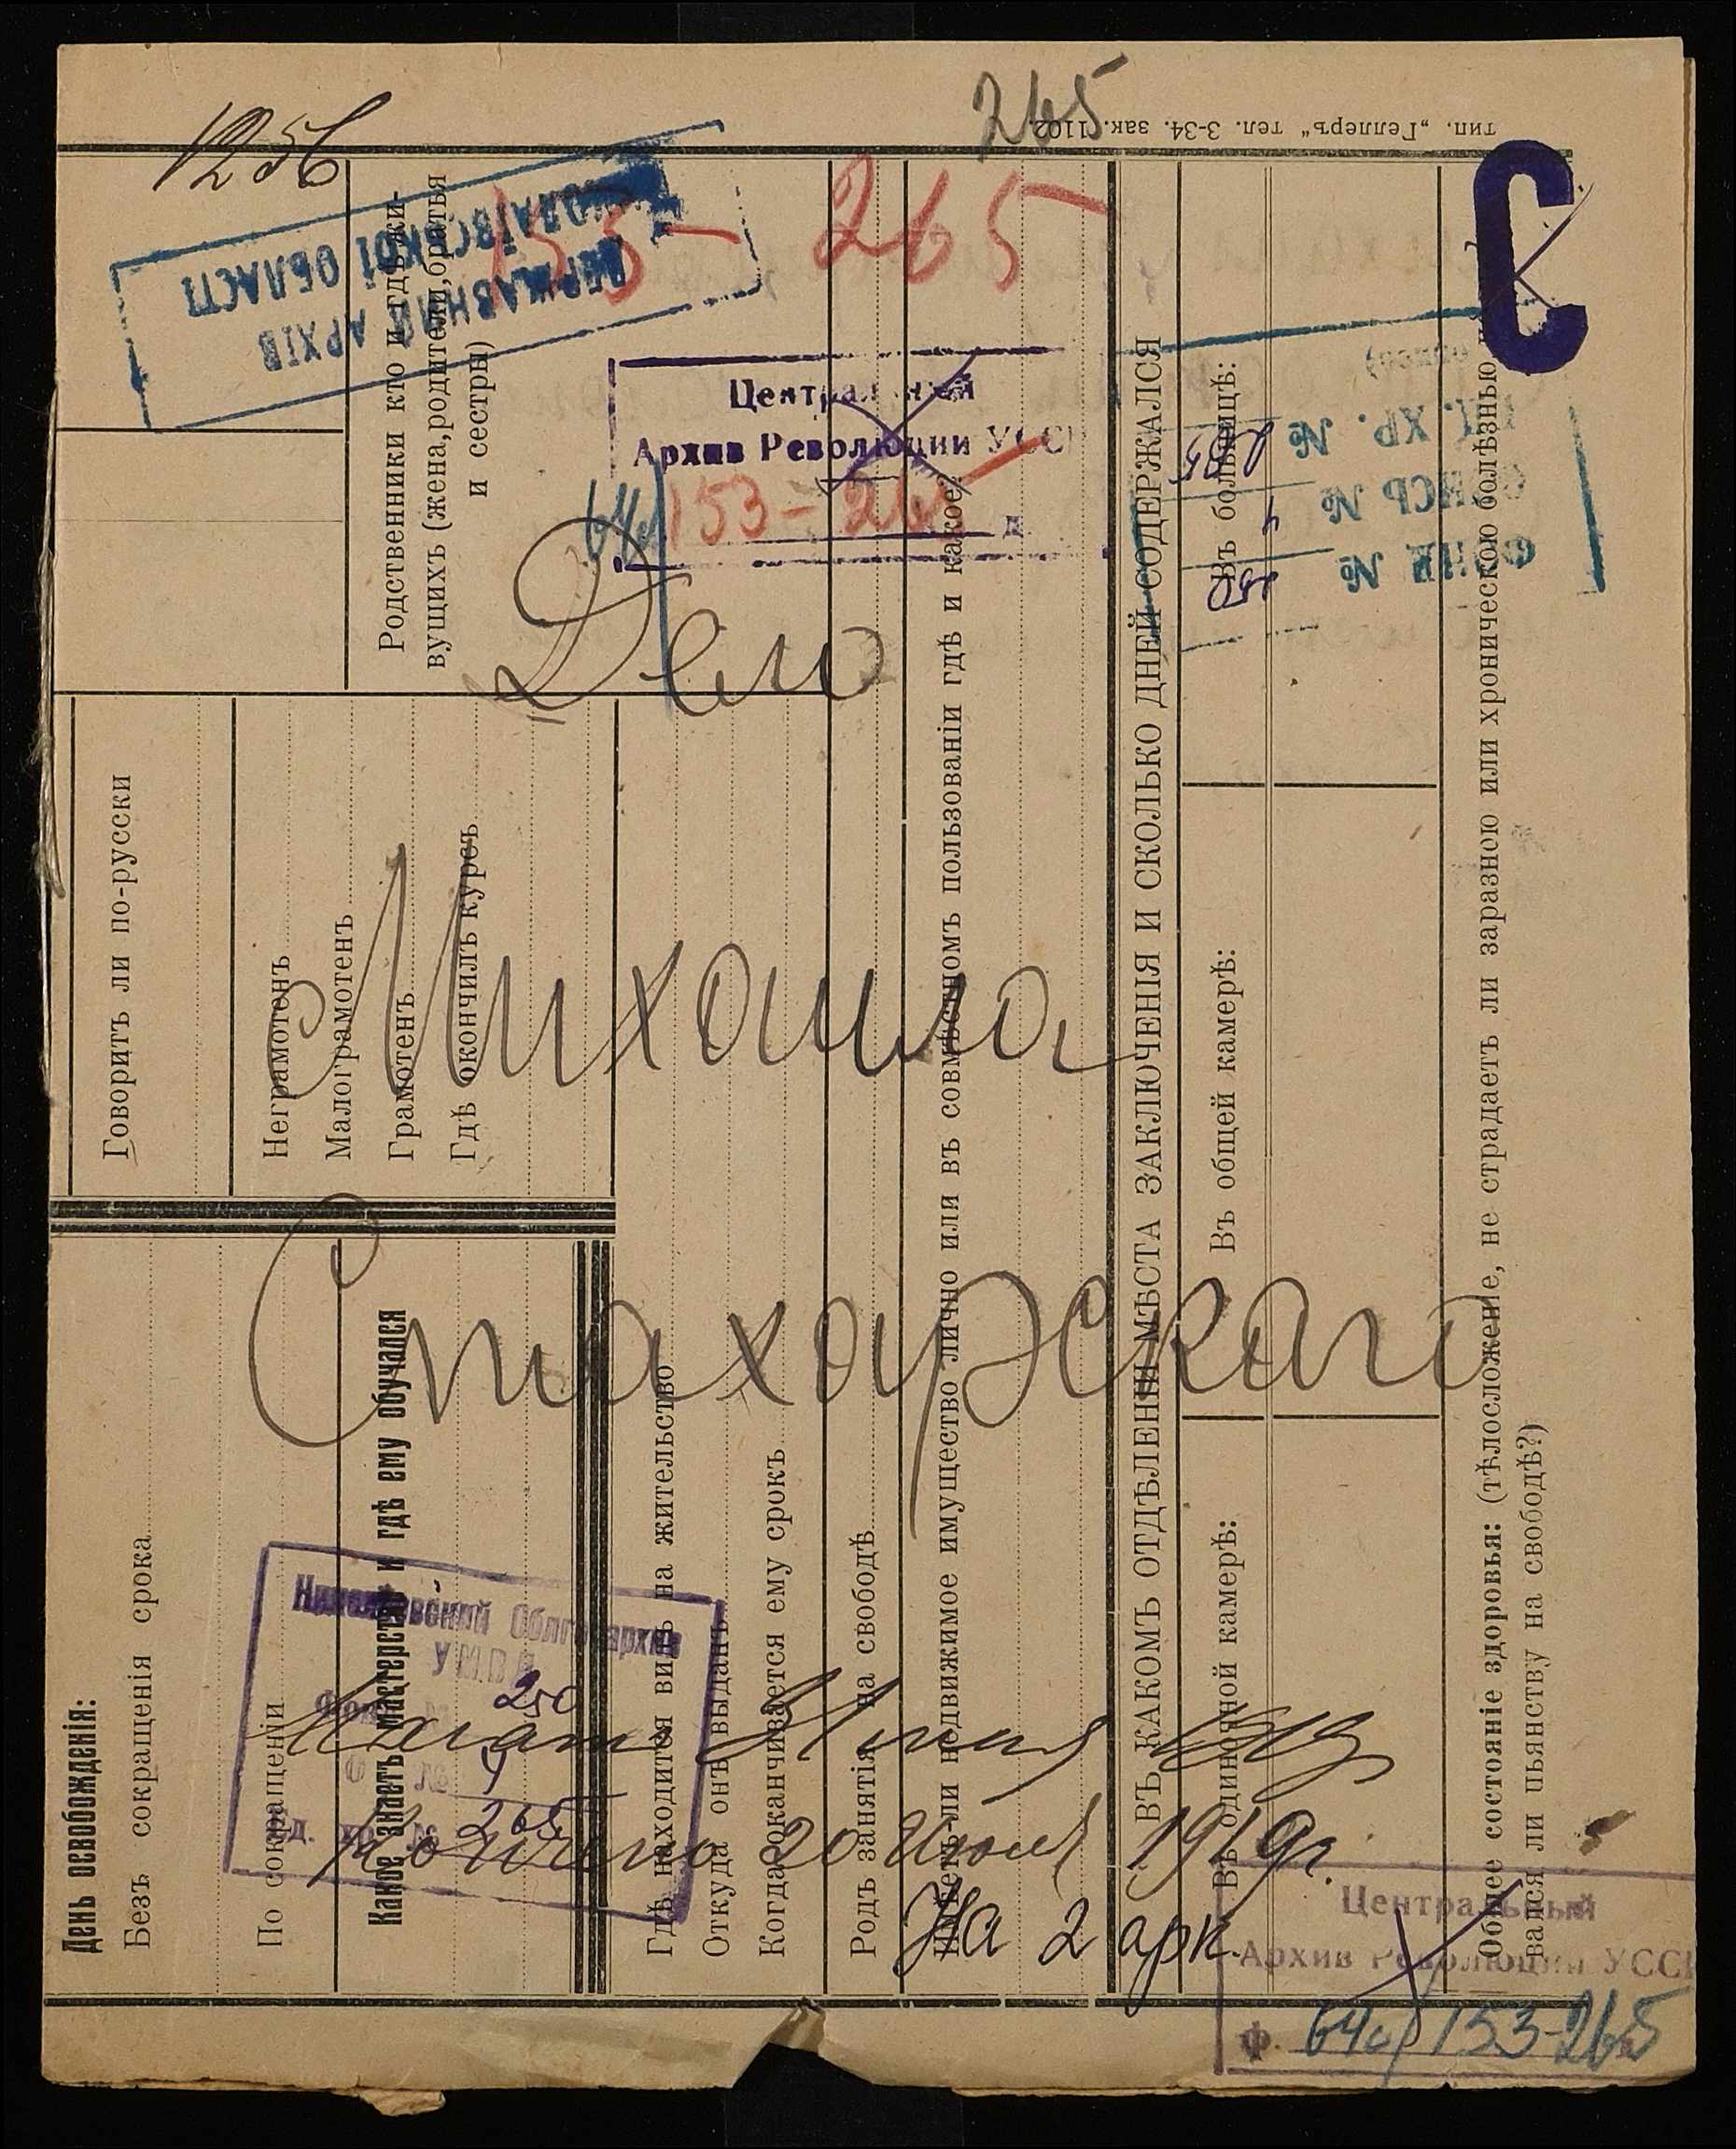 265
тип. „Геллеръ“ тел. 3-34. зак. 1102
1256
265
С
ДЕРЖАВНИЙ АРХІВ
МИКОЛАЇВСКОЇ ОБЛАСТІ
Центральный
Архив Революции УССР
153-265
ФОНД № 250
ОПИСЬ № 4
ЕД. ХР. № 265
Дело
Михаила
Стахарского
Начат Июня 1919
Кончено 20 Июля 1919 г.
На 2 арк.
Николаевский Облгосархив
УМВД
Фонд № 250
О № 4
ед. хр. № 265
Центральный
Архив Революции УССР
Ф. 640/153-265
День освобожденія:
Безъ сокращенія срока
По сокращеніи
Какое знаетъ мастерство и гдѣ ему обучался
Говоритъ ли по-русски
Неграмотенъ
Малограмотенъ
Грамотенъ
Гдѣ окончилъ курсъ
Родственники кто и гдѣ жи-
вущихъ (жена, родители, братья
и сестры)
Гдѣ находится видъ на жительство
Откуда онъ выданъ
Когда оканчивается ему срокъ
Родъ занятія на свободѣ
Имѣетъ ли недвижимое имущество лично или въ совмѣстномъ пользованіи гдѣ и какое?
ВЪ КАКОМЪ ОТДѢЛЕНІИ МѢСТА ЗАКЛЮЧЕНІЯ И СКОЛЬКО ДНЕЙ СОДЕРЖАЛСЯ
Въ одиночной камерѣ:
Въ общей камерѣ:
Въ больницѣ:
Общее состояніе здоровья: (тѣлосложеніе, не страдаетъ ли заразною или хроническою болѣзнью,
вался ли пьянству на свободѣ?)